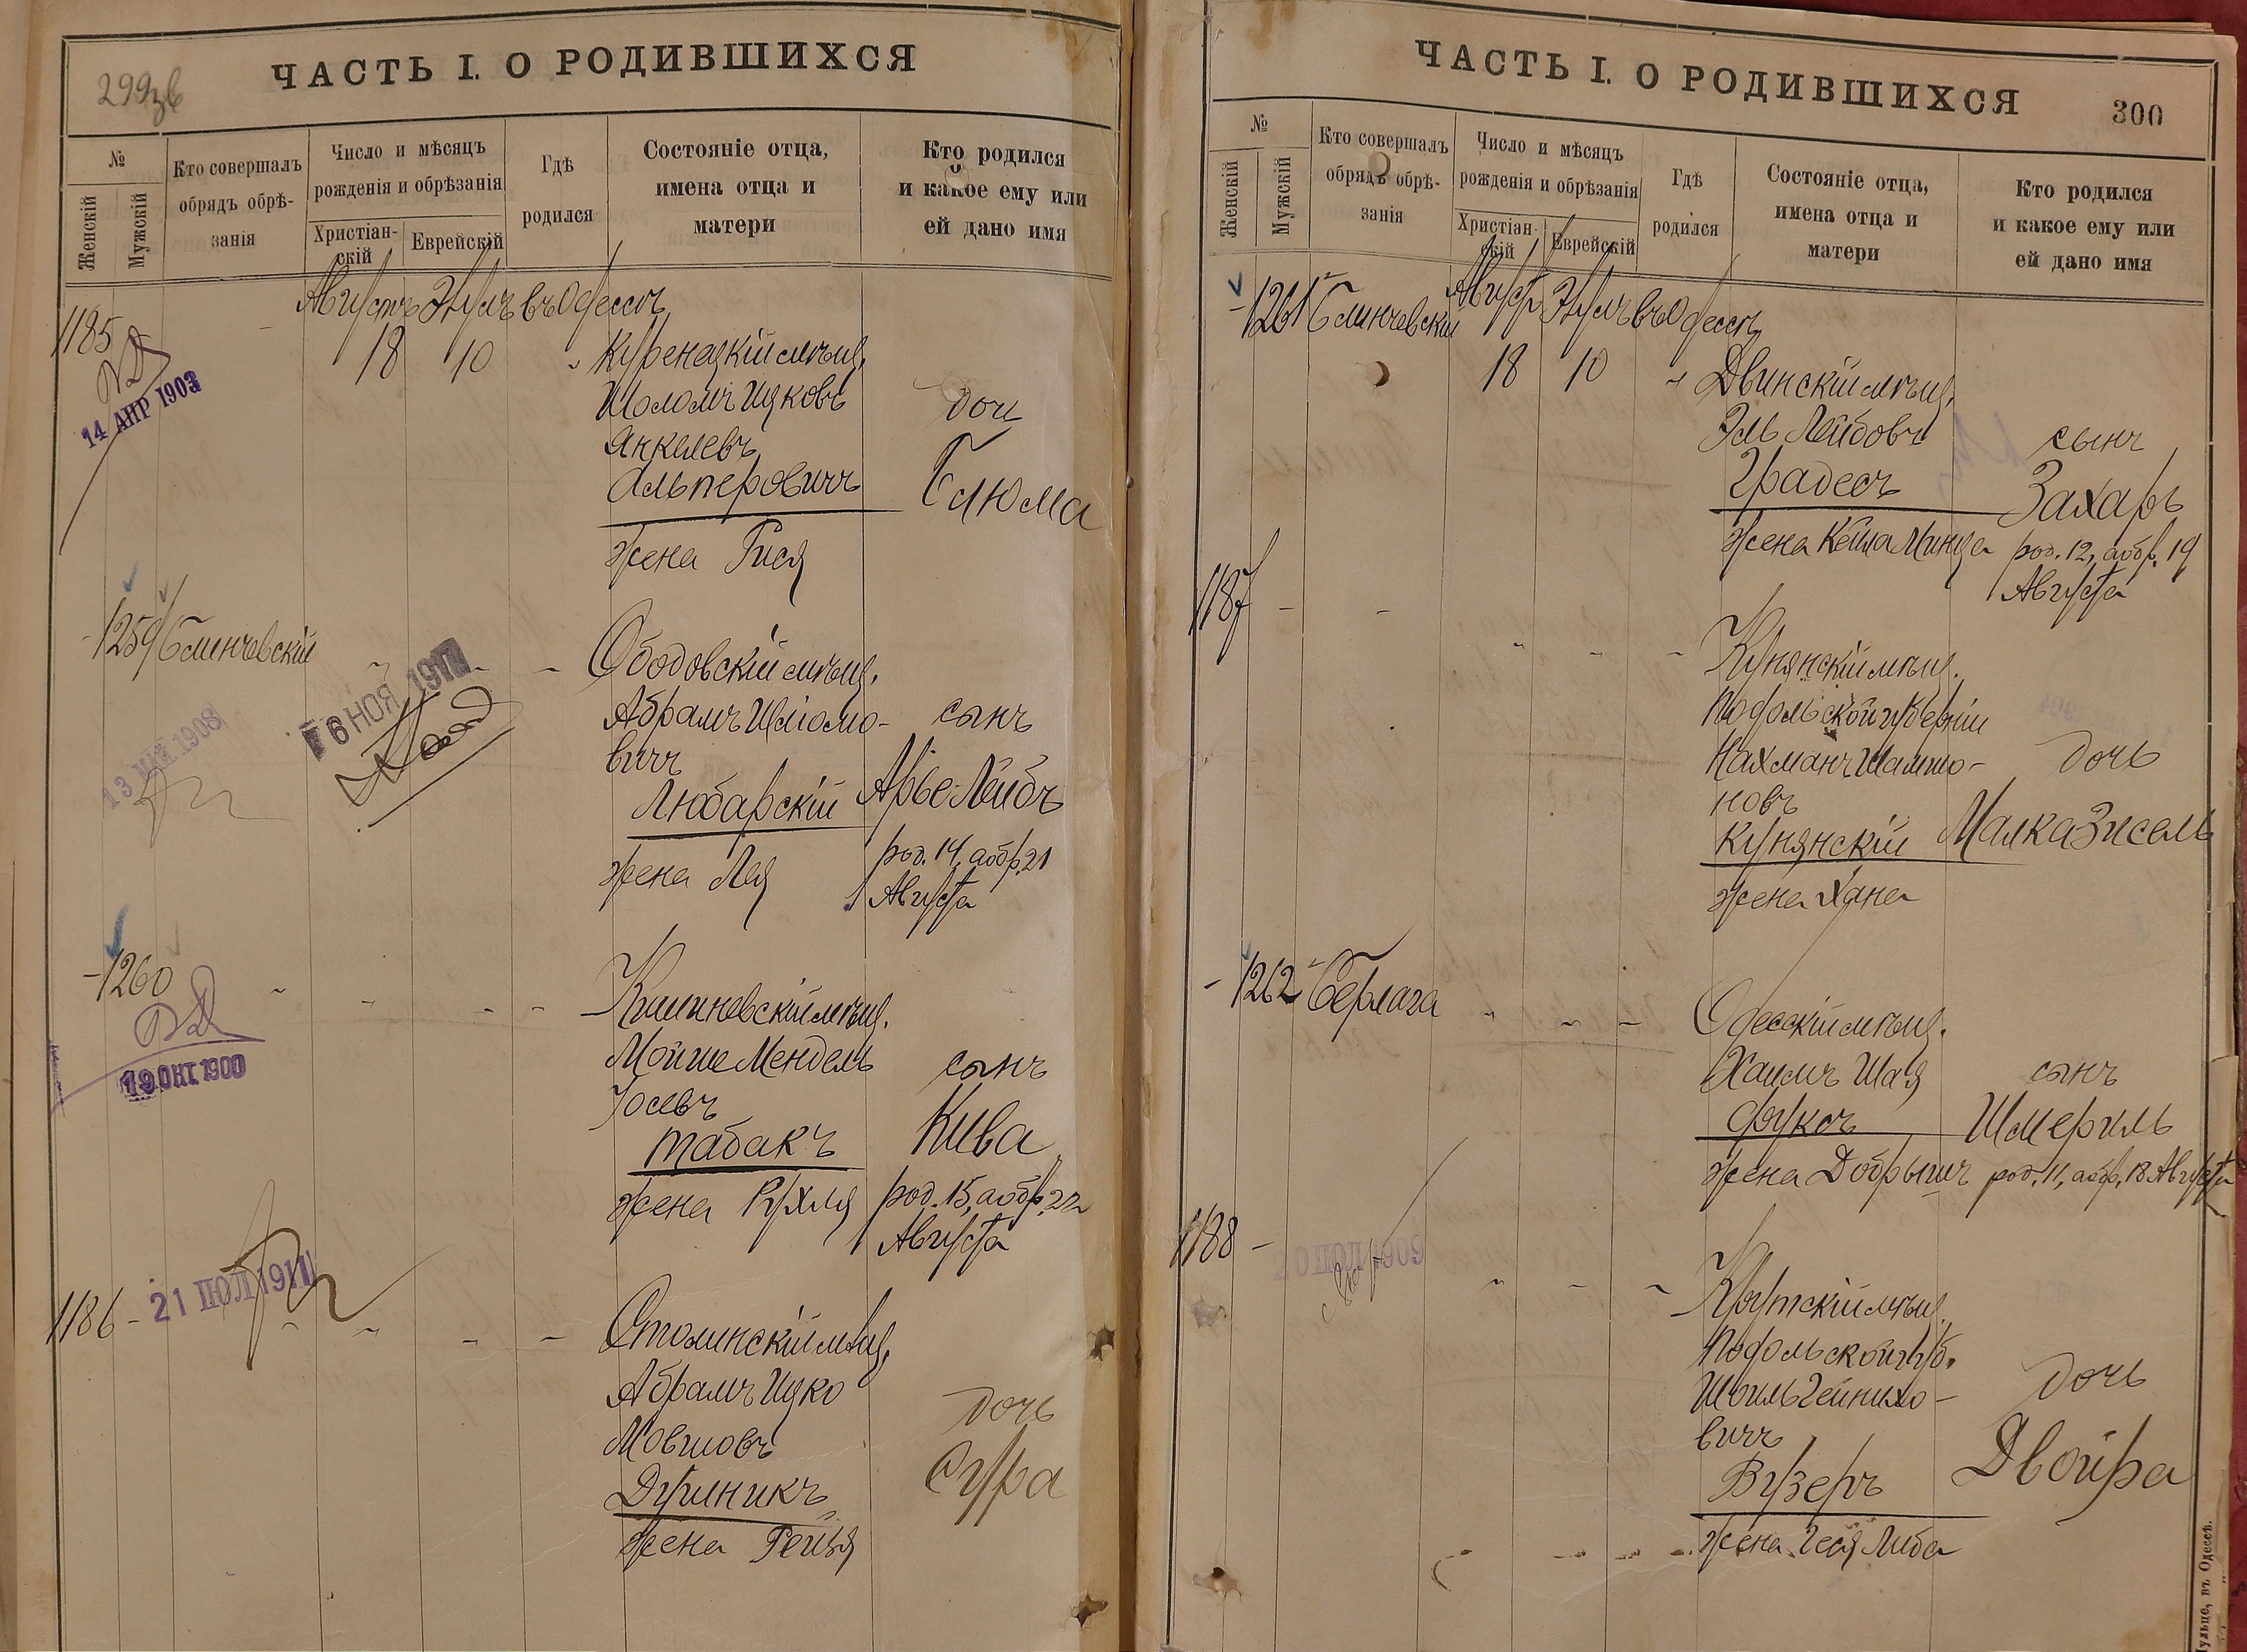 299зв
ЧАСТЬ I. О РОДИВШИХСЯ
№
Женскій
Мужскій
Кто совершалъ
обрядъ обрѣ-
занія
Число и мѣсяцъ
рожденія и обрѣзанія
Христіан-
скій
Еврейскій
Гдѣ
родился
Состояніе отца,
имена отца и
матери
Кто родился
и какое ему или
ей дано имя
Августъ Элулъ въ Одессѣ
1185 18 10 Куренецкій мѣщ.
14 АПР 1903
Шоломъ Ицковъ дочь
Янкелевъ
Альперовичъ Блюма
жена Рися
1259 Блинчевскій Ободовскій мѣщ.
6 НОЯ 191
13 1908
Абрамъ Шліомо- сынъ
вичъ
Любарскій Арье-Лейбъ
род. 14, а обр. 21
жена Лея Августа
1260 Кишиневскій мѣщ.
19 ОКТ. 1900
Мойше Мендель сынъ
Іосевъ
Табакъ Кива
жена Рухля род. 15, а обр. 22
Августа
1186 21 ІЮЛ 1911 Столинскій мѣщ.
Абрамъ Ицко дочь
Мовшовъ
Дулникъ Сура
жена Рейзя
ЧАСТЬ I. О РОДИВШИХСЯ
300
№
Женскій
Мужскій
Кто совершалъ
обрядъ обрѣ-
занія
Число и мѣсяцъ
рожденія и обрѣзанія
Христіан-
скій
Еврейскій
Гдѣ
родился
Состояніе отца,
имена отца и
матери
Кто родился
и какое ему или
ей дано имя
1261 Блинчевскій Август Элулъ въ Одессѣ
18 10 Двинскій мѣщ.
Эль Лейбовъ сынъ
Градесъ Захаръ
жена Кейла Минца род. 12, а обр. 19
Августа
1187 Кунянскій мѣщ.
Подольской губерніи
Нахманъ Шамшо- дочь
новъ
Кунянскій Малка Зисель
жена Хана
1262 Берлага Одесскій мѣщ.
Хаимъ Шая сынъ
Фуксъ Шмериль
жена Добрышъ род. 11, а обр. 18 Августа
1188 Крутскій мѣщ.
Подольской губ.
Шоиль Гейнихо- дочь
вичъ
Вузеръ Двойра
жена Геся Либа
ульце, въ Одессѣ.